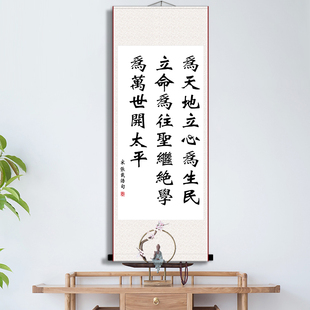 為天地立心為生民
立命為往聖繼絶學
為萬世開太平
宋張載語句